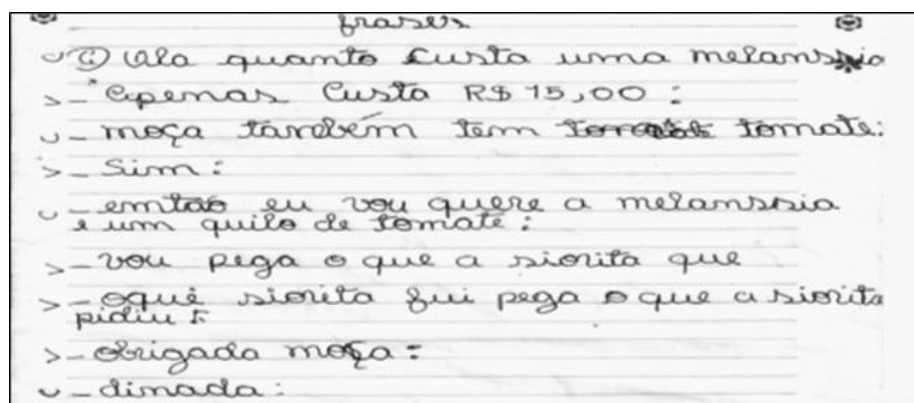 frases
C) Ola quanto custa uma melanssia
- Apenas Custa R$ 15,00 :
- moça também tem tomate:
- Sim :
- emtão eu vou quere a melanssia
e um quilo de tomate :
- vou pega o que a siorita que
- oque siorita fui pega o que a siorita
pidiu :
- obrigada moça :
- dimada :